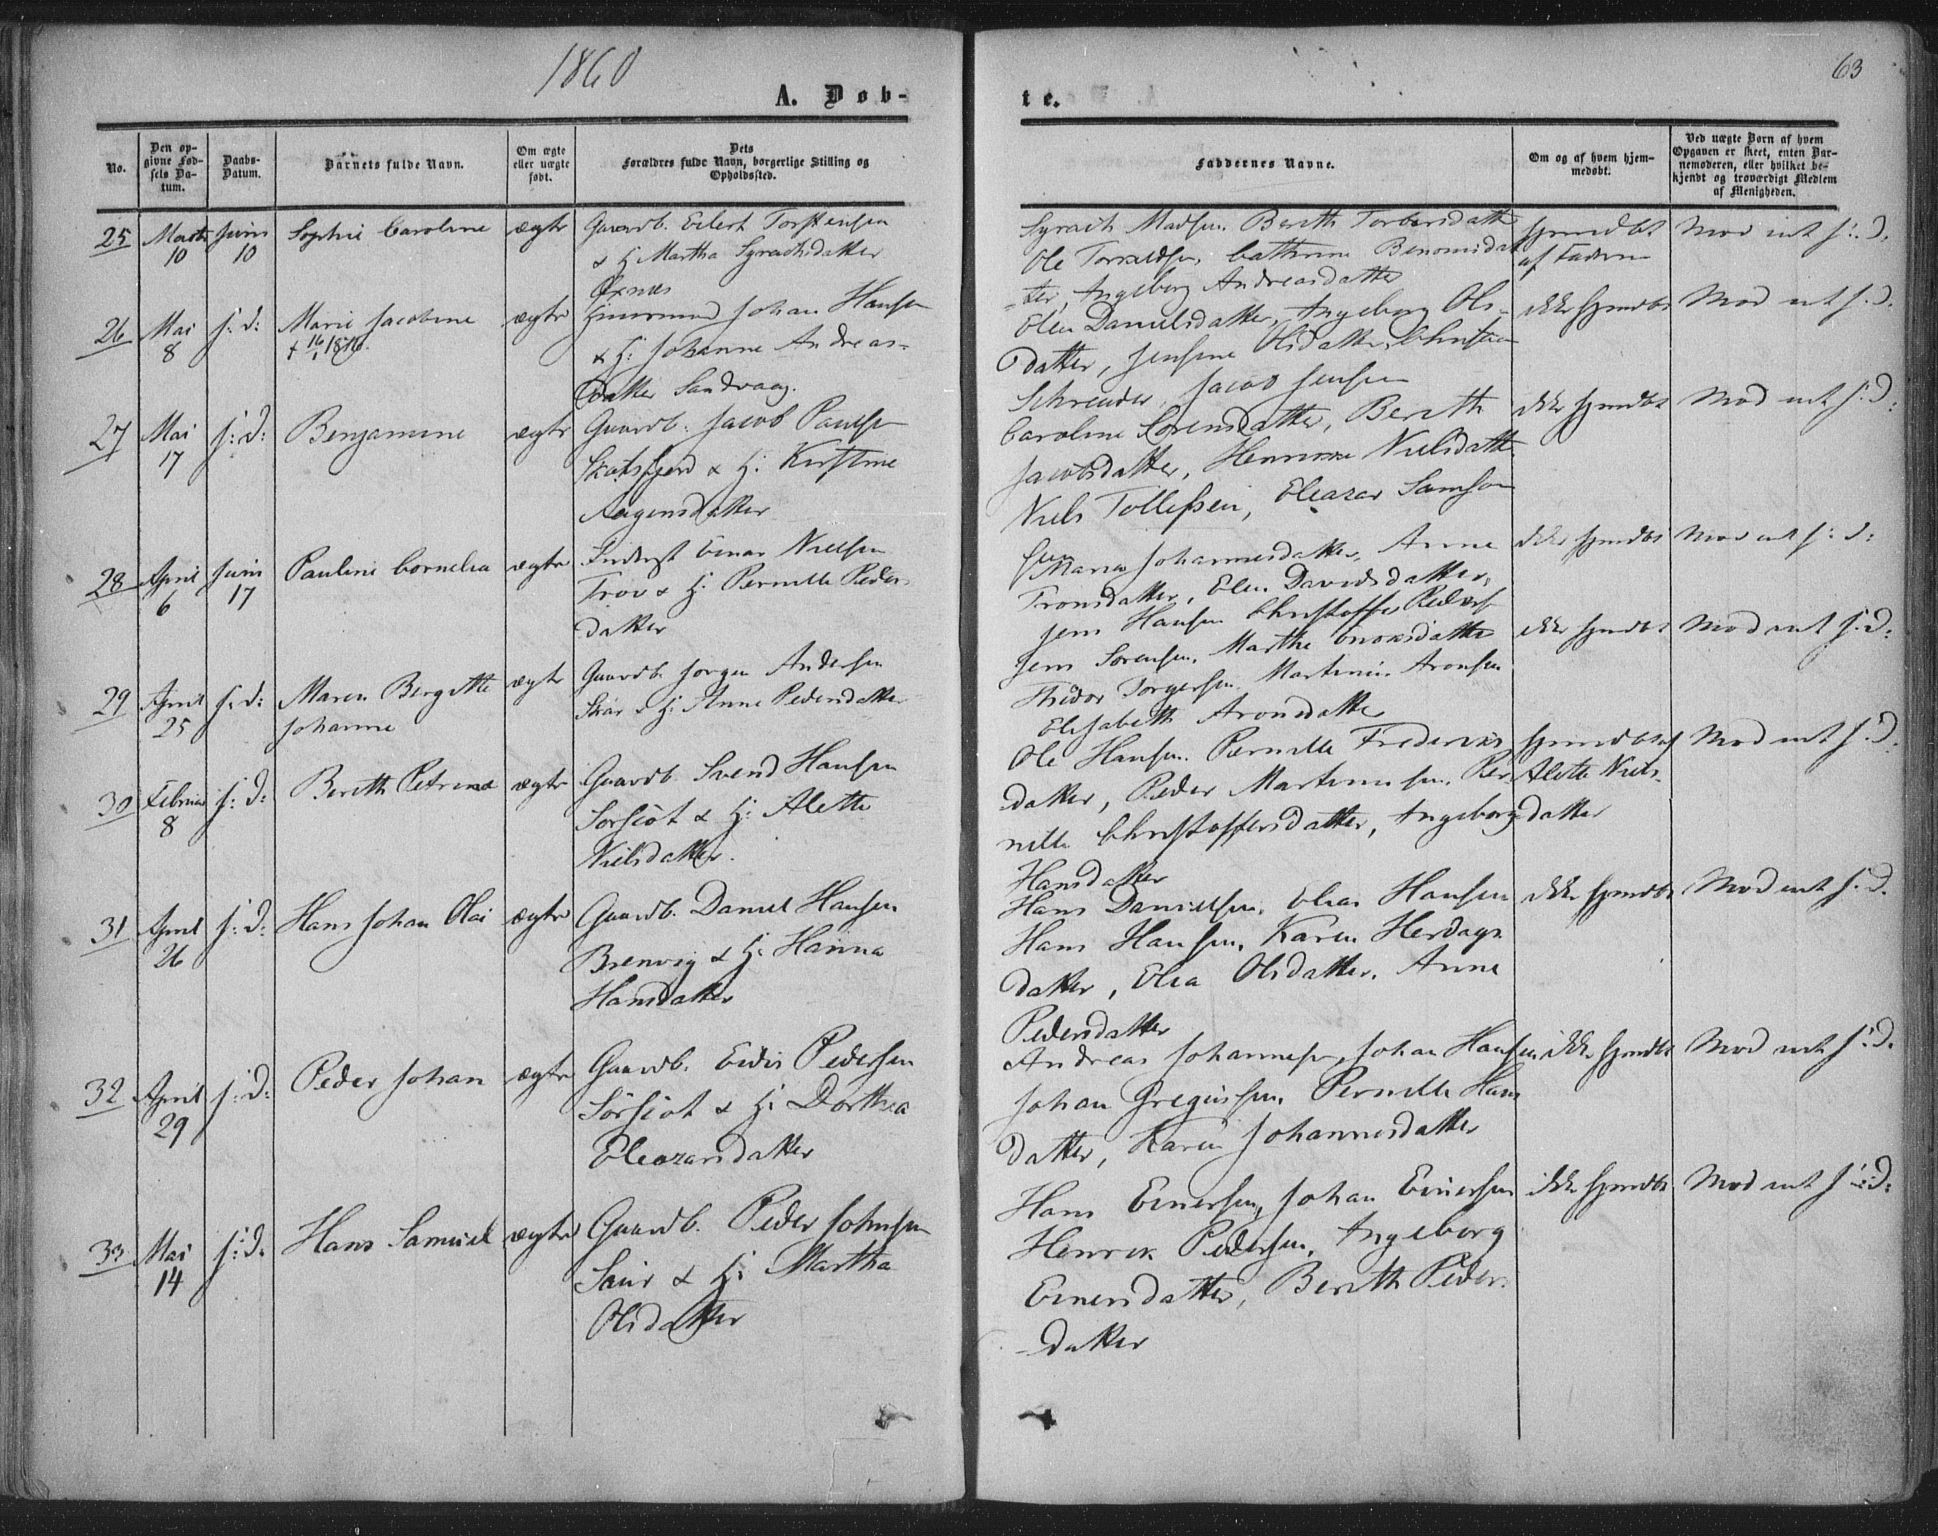 1860
63
A. Døb-
te.
No.
Den op-
givne Fød-
sels Da-
tum.
Daabs-
Datum.
Barnets fulde Navn.
Om ægte
eller uægte
født.
Dets
Forældres fulde Navn, borgerlige Stilling og
Opholdssted.
Faddernes Navne.
Om og af hvem hjem-
medøbt.
Ved uægte Børn af hvem
Opgaven er skeet, enten Bar-
nemoderen, eller hvilket be-
kjendt og troværdigt Medlem
af Menigheden.
25
Marts
10
Juni
10
Sophie Caroline
ægte
Gaardb. Eilert Torstensen
& H: Martha Syrachsdatter
Øxnes
Syrach Madsen. Bereth Torbersdatt
Ole Cathrine Benonisdat
ter, Ingeborg Andreasdatter
hjemdbt
af Faderen
Mod int s: d.
26
Mai
8
s: d:
Marie Jacobine
† 16/1 1876.
ægte
Johan Hansen
& H: Johanne Andreas-
datter Sandvaag.
Elen Danielsdatter, Ingeborg Ols-
datter, Jensine Olsdatter, Christian
Schreuder, Jacob Jensen
ikke hjemdbt
Mod int s: d.
27
Mai
17
s: d:
Benjamine
ægte
Gaardb. Jacob Paulsen
Skatsfjord & H: Kirstine
Aagensdatter
Caroline Sørensdatter, Bereth
Jacobsdatter, Henrikke Nielsdatt
Niels Tollefsen, Eleazar Samson
ikke hjemdbt
Mod int s: d:
28
April
6
Juni
17
Pauline Cornelia
ægte
Inderst Einar Nielsen
& H: Pernille Peders
datter
Maria Johannesdatter, Anne
Tronsdatter, Elen Davidsdatter,
Jens Hansen Christoffer Peders
ikke hjemdbt
Mod int s: d:
29
April
25
s: d:
Maren Bergitte
Johanne
ægte
Gaardb. Jørgen Andersen
Skar & H: Anne Pedersdatter
Jens Sørensen, Marthe Enoksdatter
Martinus Aronsen
Elisabeth Aronsdatter
ikke hjemdbt
Mod int s: d:
30
Februar
8
s: d:
Bereth Petrine
ægte
Gaardb. Svend Hansen
& H: Alette
Nielsdatter.
Ole Hansen. Pernille Fredriks
datter, Peder Martinussen, Per
nille Christoffersdatter, Ingeborg
Hansdatter
hjemdbt af
Alette Niels-
datter
Mod int s: d.
31
April
26
s: d:
Hans Johan Olai
ægte
Gaardb. Daniel Hansen
Brenvig & H: Hanna
Hansdatter
Hans Danielsen, Elias Hansen
Hans Hansen, Karen Herdags
datter, Elea Olsdatter, Anne
Pedersdatter
ikke hjemdbt
Mod int s: d.
32
April
29
s: d:
Peder Johan
ægte
Gaardb. Eidis Pedersen
& H: Dorthea
Eleazarsdatter
Andreas Johannesen, Johan Hansen
Johan Gregusen, Pernille Hans
datter, Karen Johannesdatter
ikke hjemdbt
Mod int s: d.
33
Mai
14
s: d.
Hans Samuel
ægte
Gaardb. Peder Johnsen
& H: Martha
Olsdatter
Hans Einersen, Johan Einersen
Henrik Pedersen, Ingeborg
Einersdatter, Bereth Peders
datter
ikke hjemdbt
Mod int s: d: